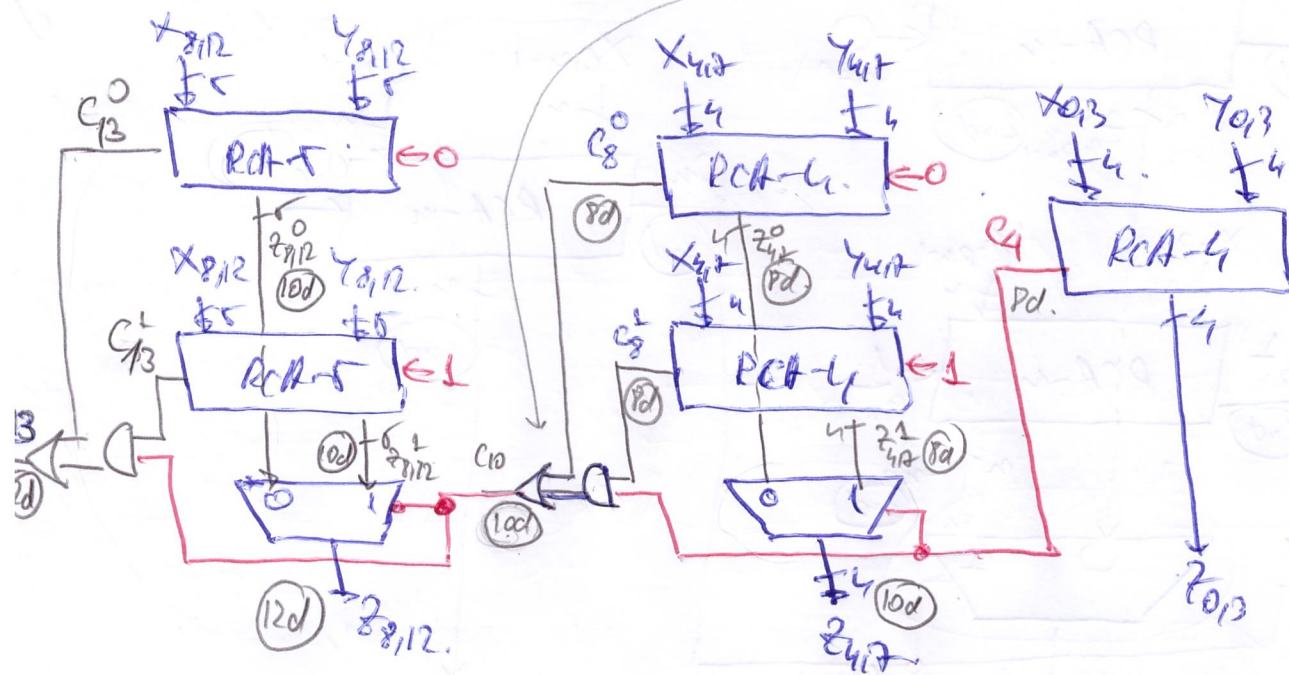 X8,12 Y8,12
5 5
C13^0
RCA-5 ←0
5
Z8,12^0
10d
X8,12 Y8,12.
5 5
C13^1
RCA-5 ←1
10d 5 Z8,12^1
0 1
12d
Z8,12.
X4,7 Y4,7
4 4
C8^0
RCA-4. ←0
8d
4 Z4,7^0
8d.
X4,7 Y4,7
4 4
C8^1
RCA-4 ←1
8d
4 Z4,7^1 8d
C10
10d
0 1
4 10d
Z4,7
X0,3 Y0,3
4. 4
C4
RCA-4
8d.
4
Z0,3